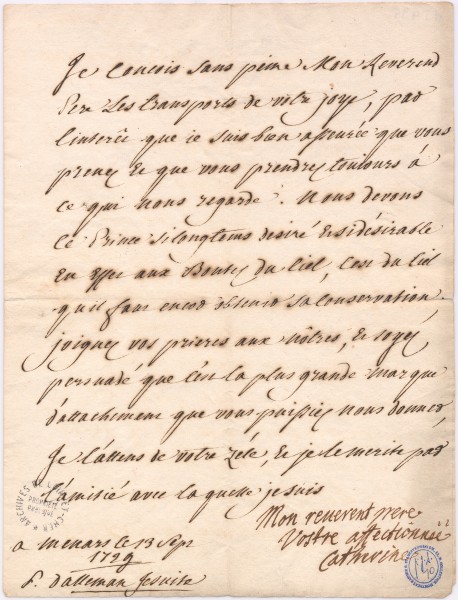 Je concois sans peine Mon Reverend
Pere Les transports de votre joye, par
l'interêt que ie suis bien assurée que vous
prenez Et que vous prendrez toujours à
ce qui nous regarde. Nous devons
ce Prince silongtems desiré Etsidésirable
En effet aux Bontez Du Ciel, C'est du Ciel
quil faut encor obtenir sa conservation.
joignez vos prieres aux nôtres, Et soyez
persuadé que C'est la plus grande marque
d'attachement que vous puissiez nous donner,
Je l'attens de votre zéle, Et je le merite par
l'amitié avec la quelle je suis
Mon reuerent pere
Vostre affectionnée
Catherine
a Menars le 13 Sepr
1729
P. Dalleman Jesuite
ARCHIVES DE L ET CHER
PROPRIÉTÉ PUBLIQUE